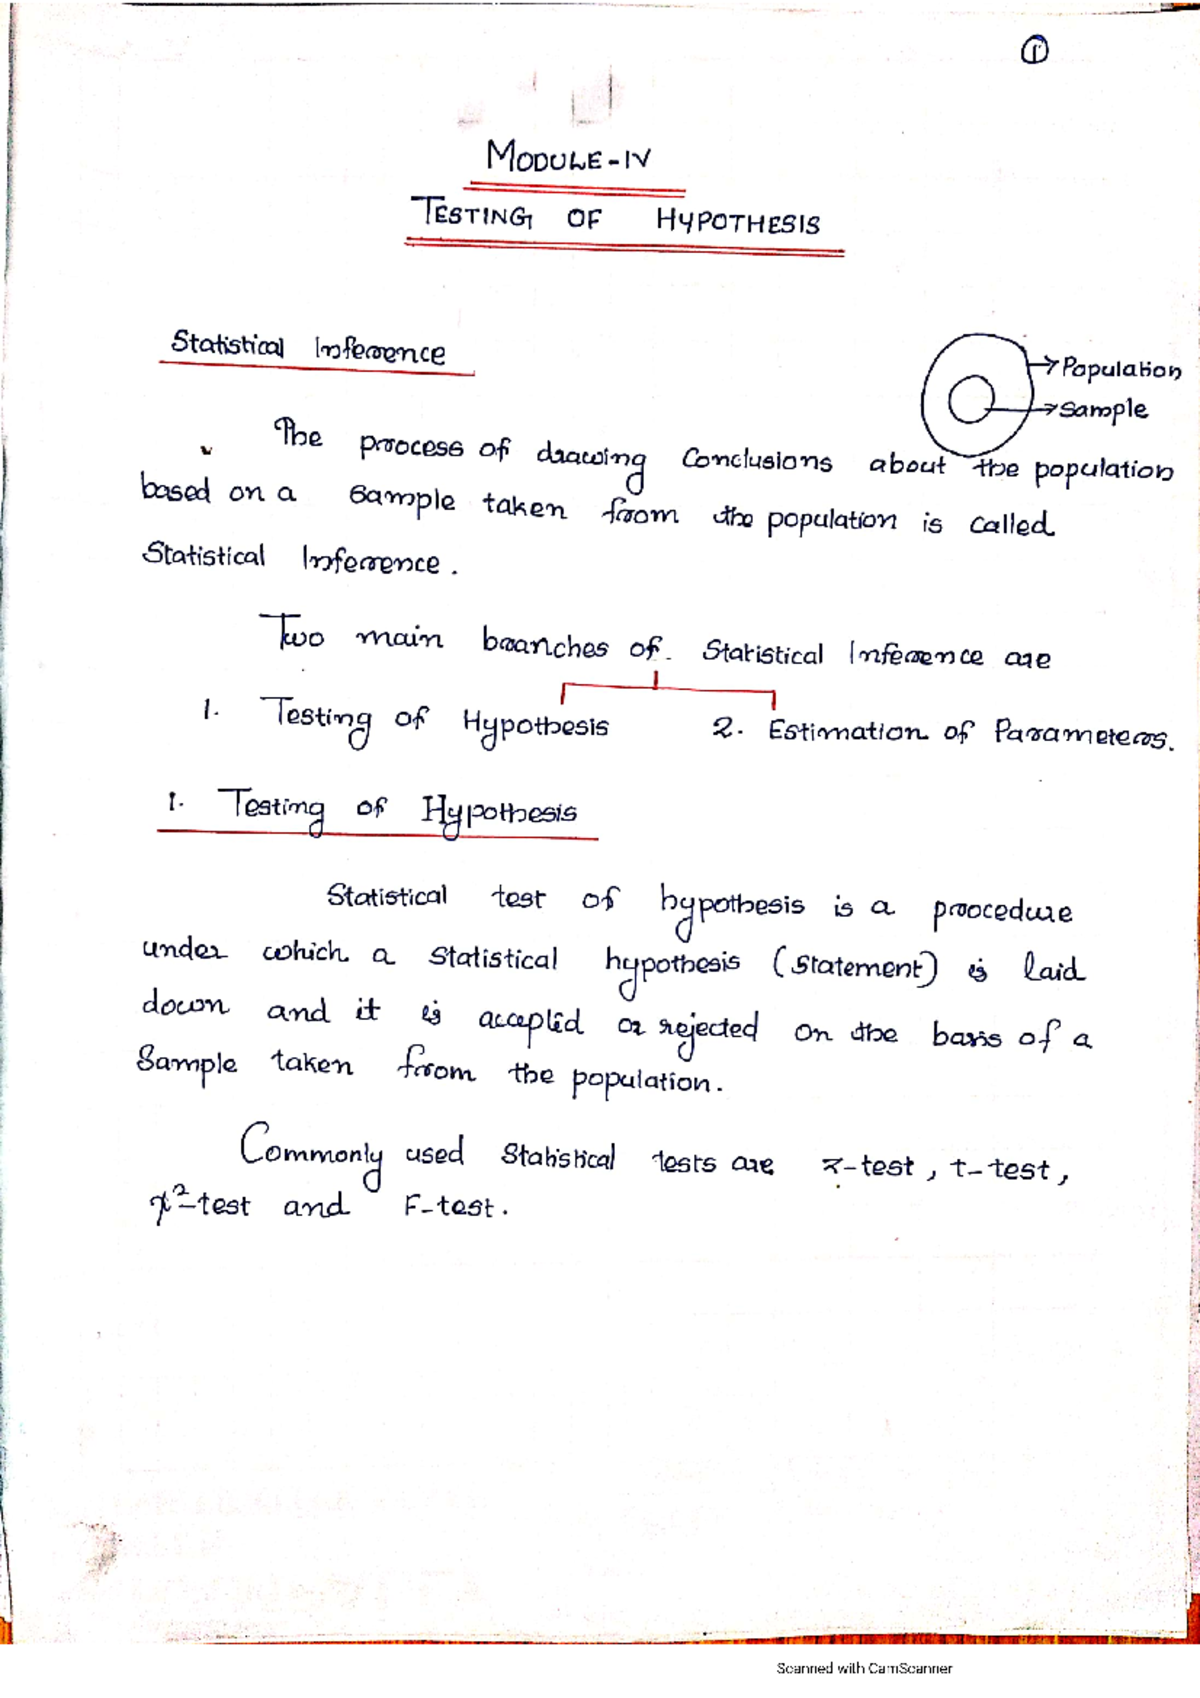 1
MODULE-IV
TESTING OF HYPOTHESIS
Statistical Inference
→Population
→Sample
The process of drawing Conclusions about the population
based on a Sample taken from the population is called
Statistical Inference.
Two main branches of Statistical Inference are
1. Testing of Hypothesis 2. Estimation of Parameters.
1. Testing of Hypothesis
Statistical test of hypothesis is a procedure
under which a statistical hypothesis (statement) is laid
down and it is accepted or rejected on the basis of a
Sample taken from the population.
Commonly used Statistical tests are z-test, t-test,
χ²-test and F-test.
Scanned with CamScanner